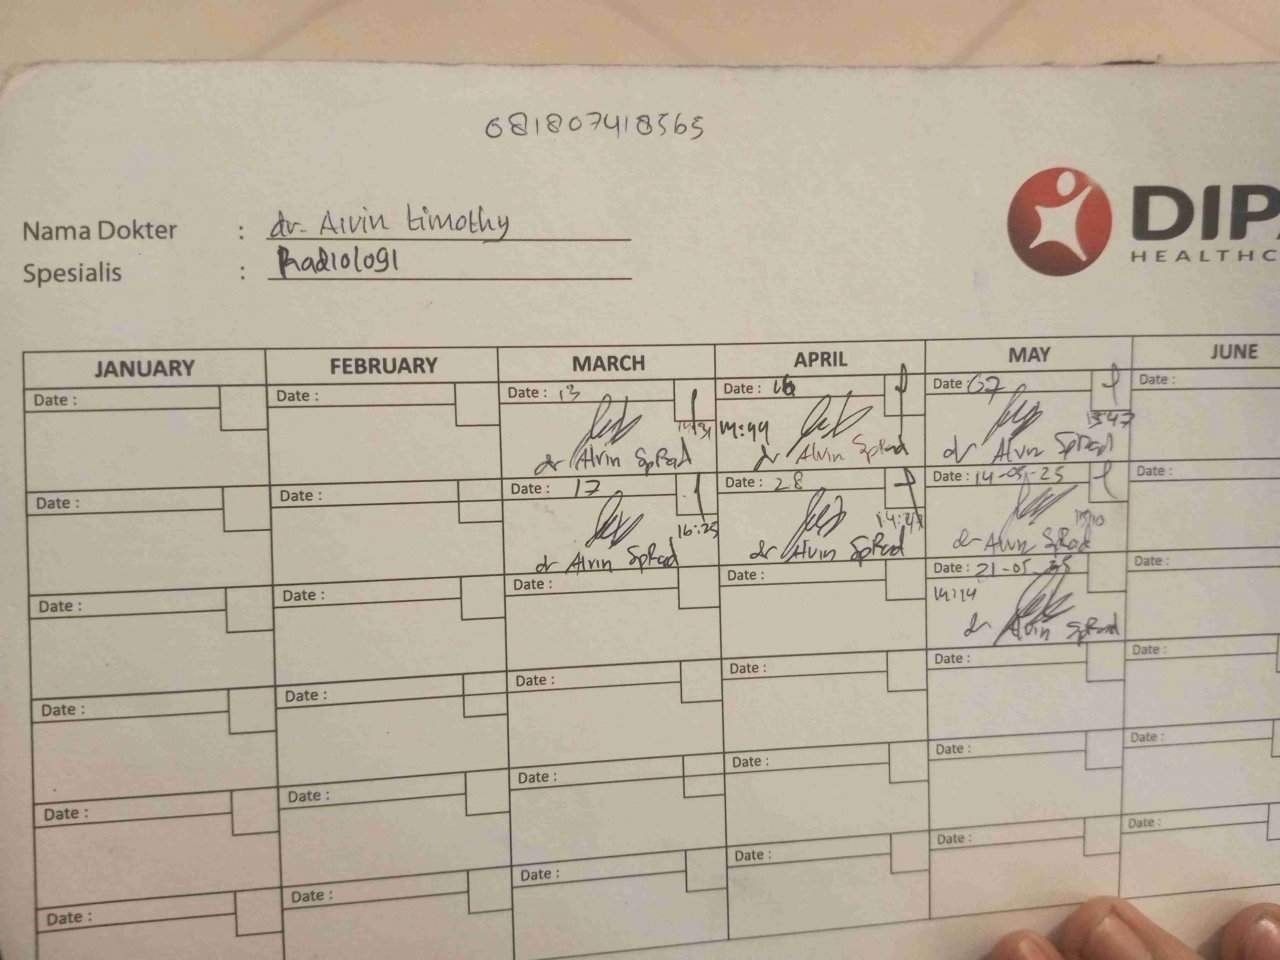 081807418565
Nama Dokter : dr. Alvin timothy
Spesialis : Radiologi
DIPA
HEALTHC
JANUARY FEBRUARY MARCH APRIL MAY JUNE
Date : Date : Date : 13 Date : 16 Date : 07 Date :
14:44 13:47
dr Alvin SpRad dr Alvin SpRad dr Alvin SpRad
Date : Date : Date : 17 Date : 28 Date : 14-05-25 Date :
16:25 15:10
dr Alvin SpRad dr Alvin SpRad dr Alvin SpRad
Date : Date : Date : Date : Date : 21-05-25 Date :
14:14
dr Alvin SpRad
Date : Date : Date : Date : Date : Date :
Date : Date : Date : Date : Date : Date :
Date : Date : Date : Date : Date : Date :